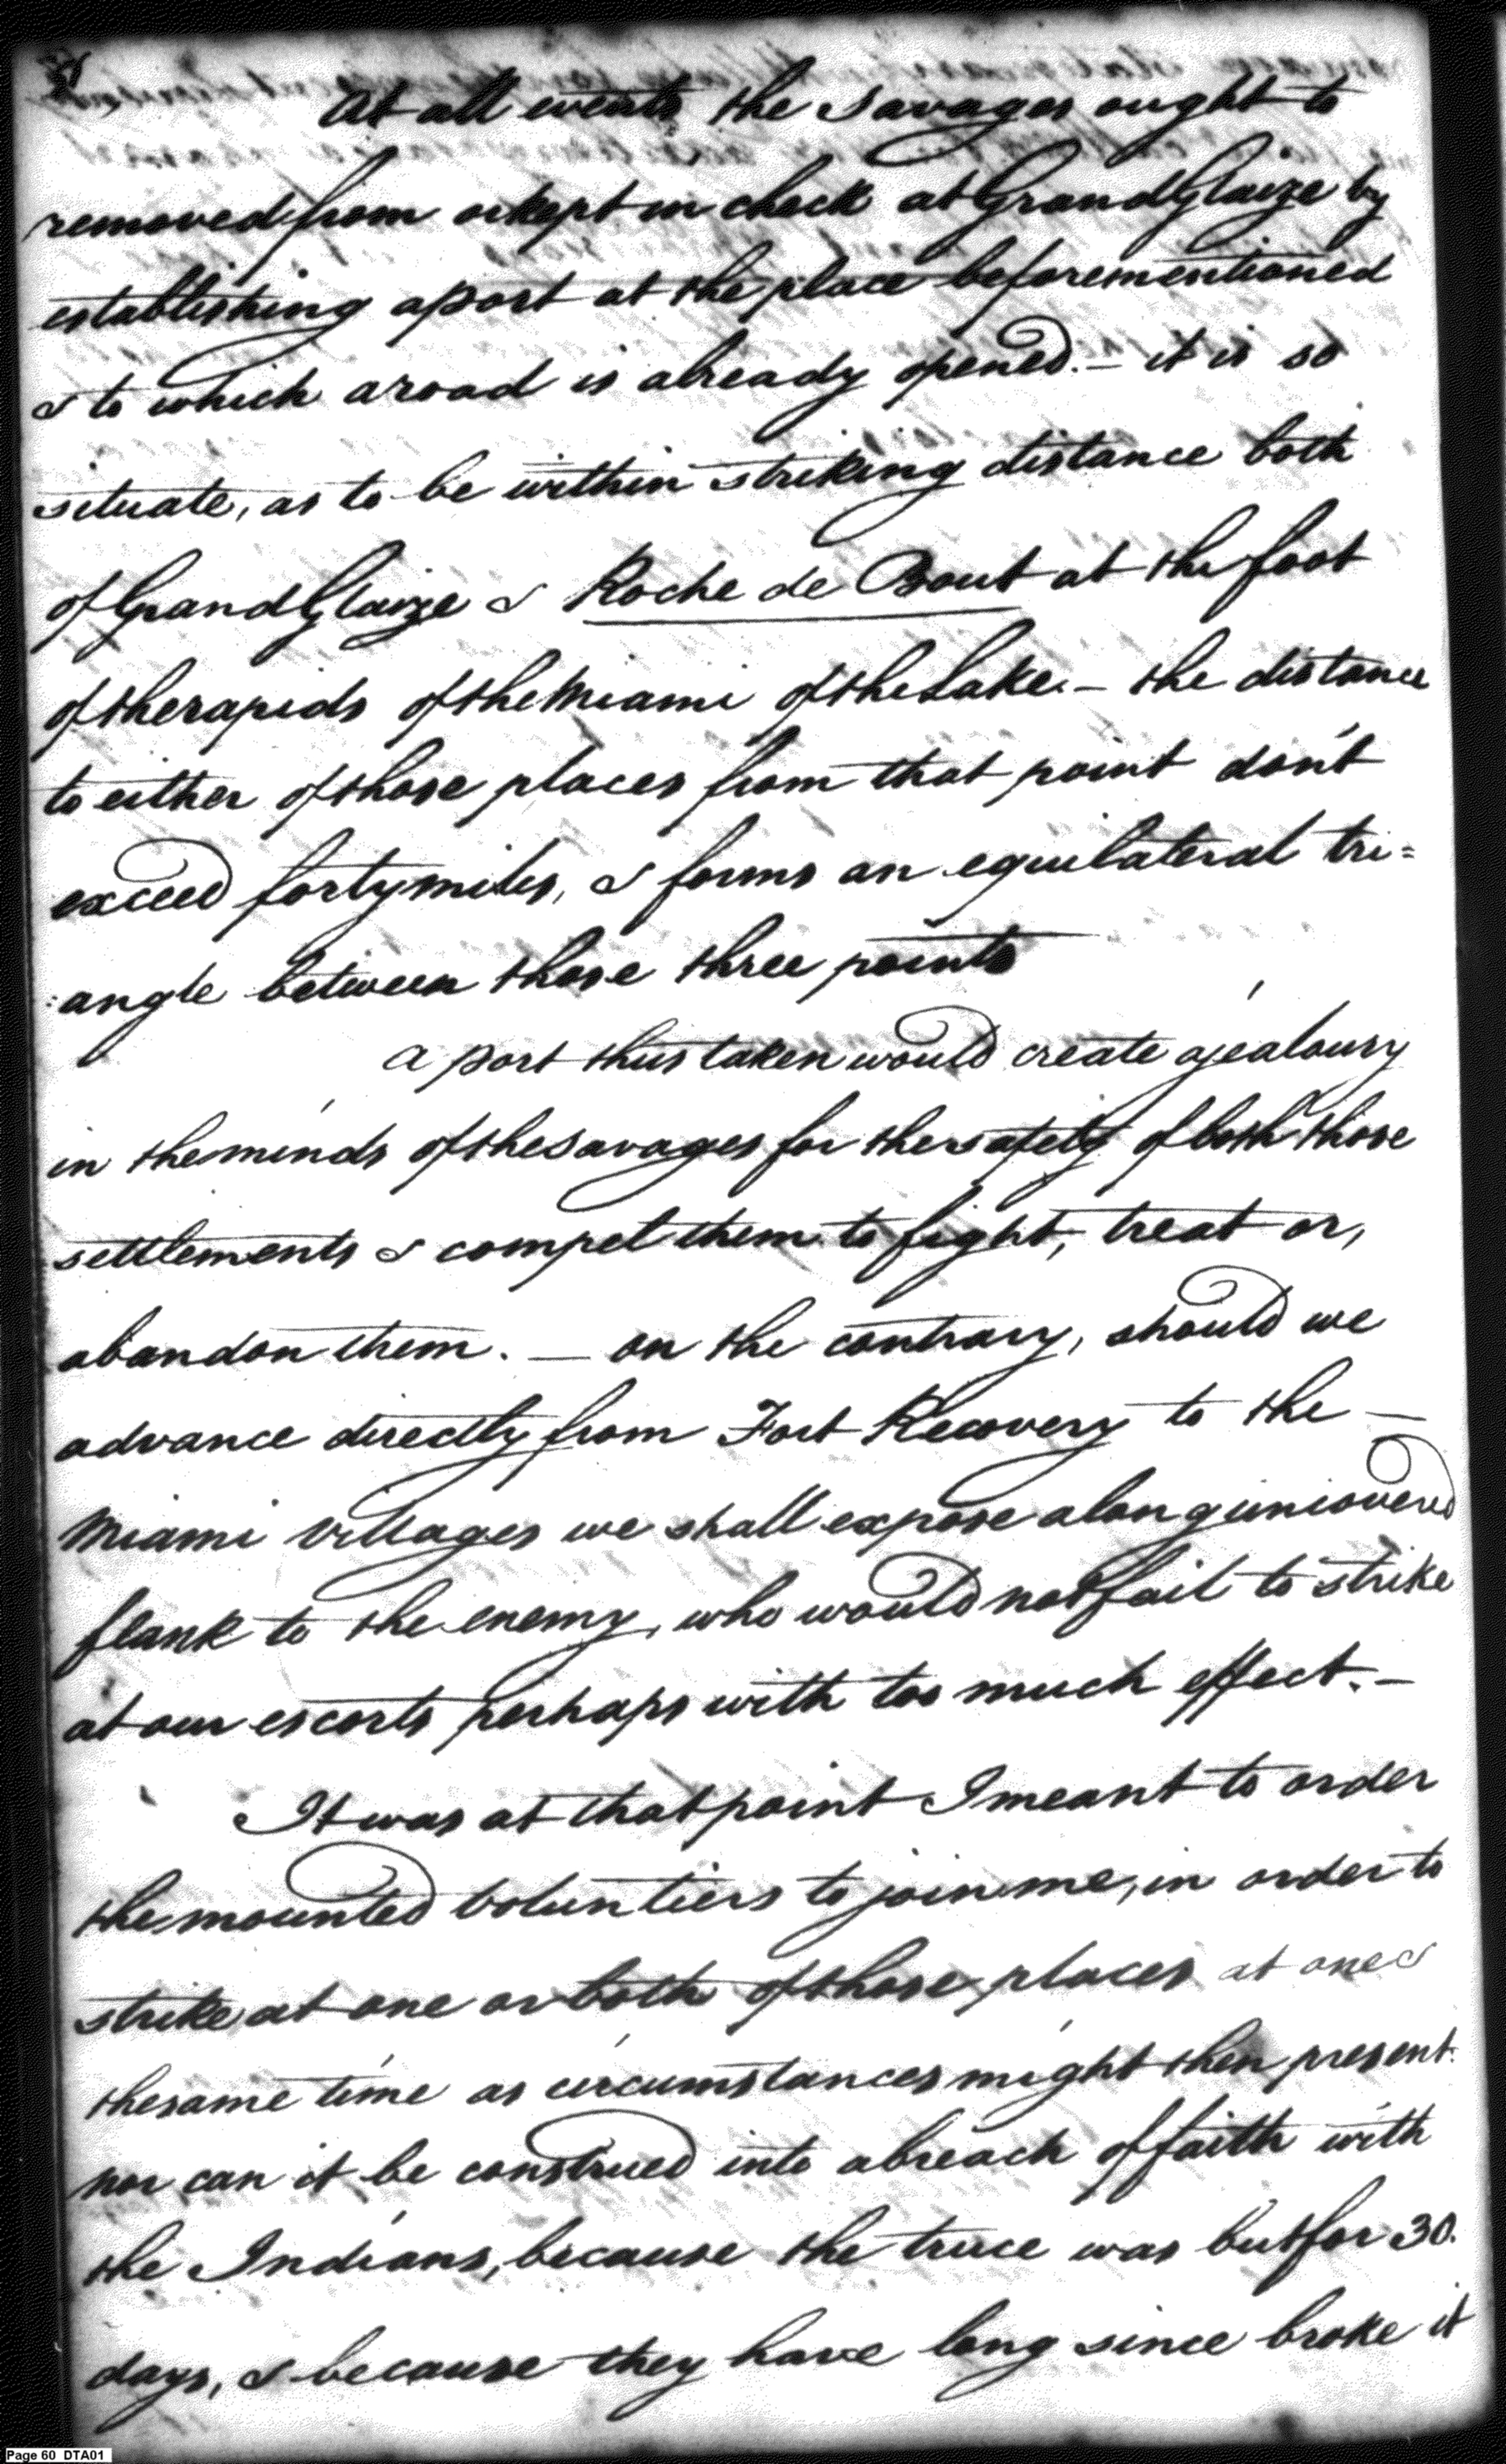 At all events the Savages ought to
removed from or kept in check at Grand Glaize by
establishing a post at the place beforementioned
& to which a road is already opened. — it is so
situate, as to be within striking distance both
of Grand Glaize & Roche de Bout at the foot
of the rapids of the Miami of the Lake. — the distance
to either of those places from that point don't
exceed forty miles, & forms an equilateral tri=
:angle between those three points
a post thus taken would create a jealousy
in the minds of the Savages for the safety of both those
settlements & compel them to fight, treat or,
abandon them. — on the contrary, should we
advance directly from Fort Recovery to the —
Miami Villages we shall expose a long uncovered
flank to the enemy, who would not fail to strike
at our escorts perhaps with too much effect. —
It was at that point I meant to order
the mounted Voluntiers to join me, in order to
strike at one or both of those places at one &
the same time as circumstances might then present.
nor can it be construed into a breach of faith with
the Indians, because the truce was but for 30.
days, & because they have long since broke it
Page 60 DTA01